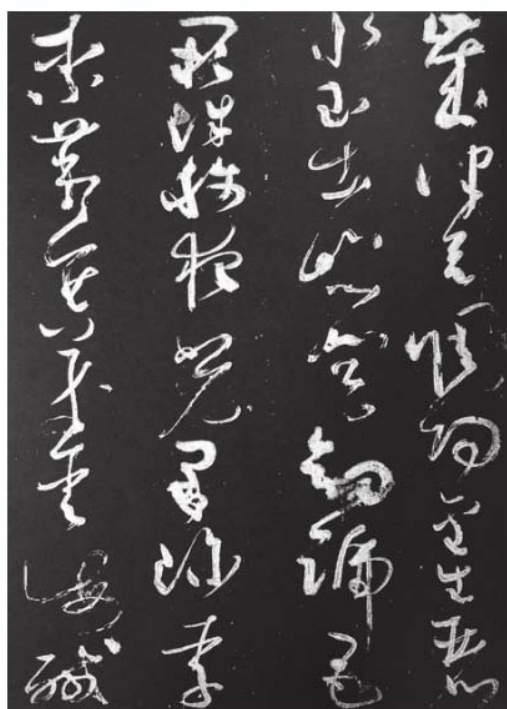 歲律呂調陽金生麗
水玉出崑岡劍號巨
闕珠稱夜光果珍李
柰菜重芥薑海鹹